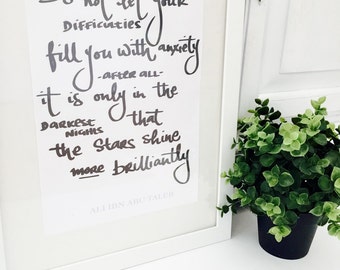 Do not let your
DIFFICULTIES
fill you with anxiety
- AFTER ALL -
it is only in the
DARKEST NIGHTS that
the stars shine
more brilliantly
ALI IBN ABU TALEB